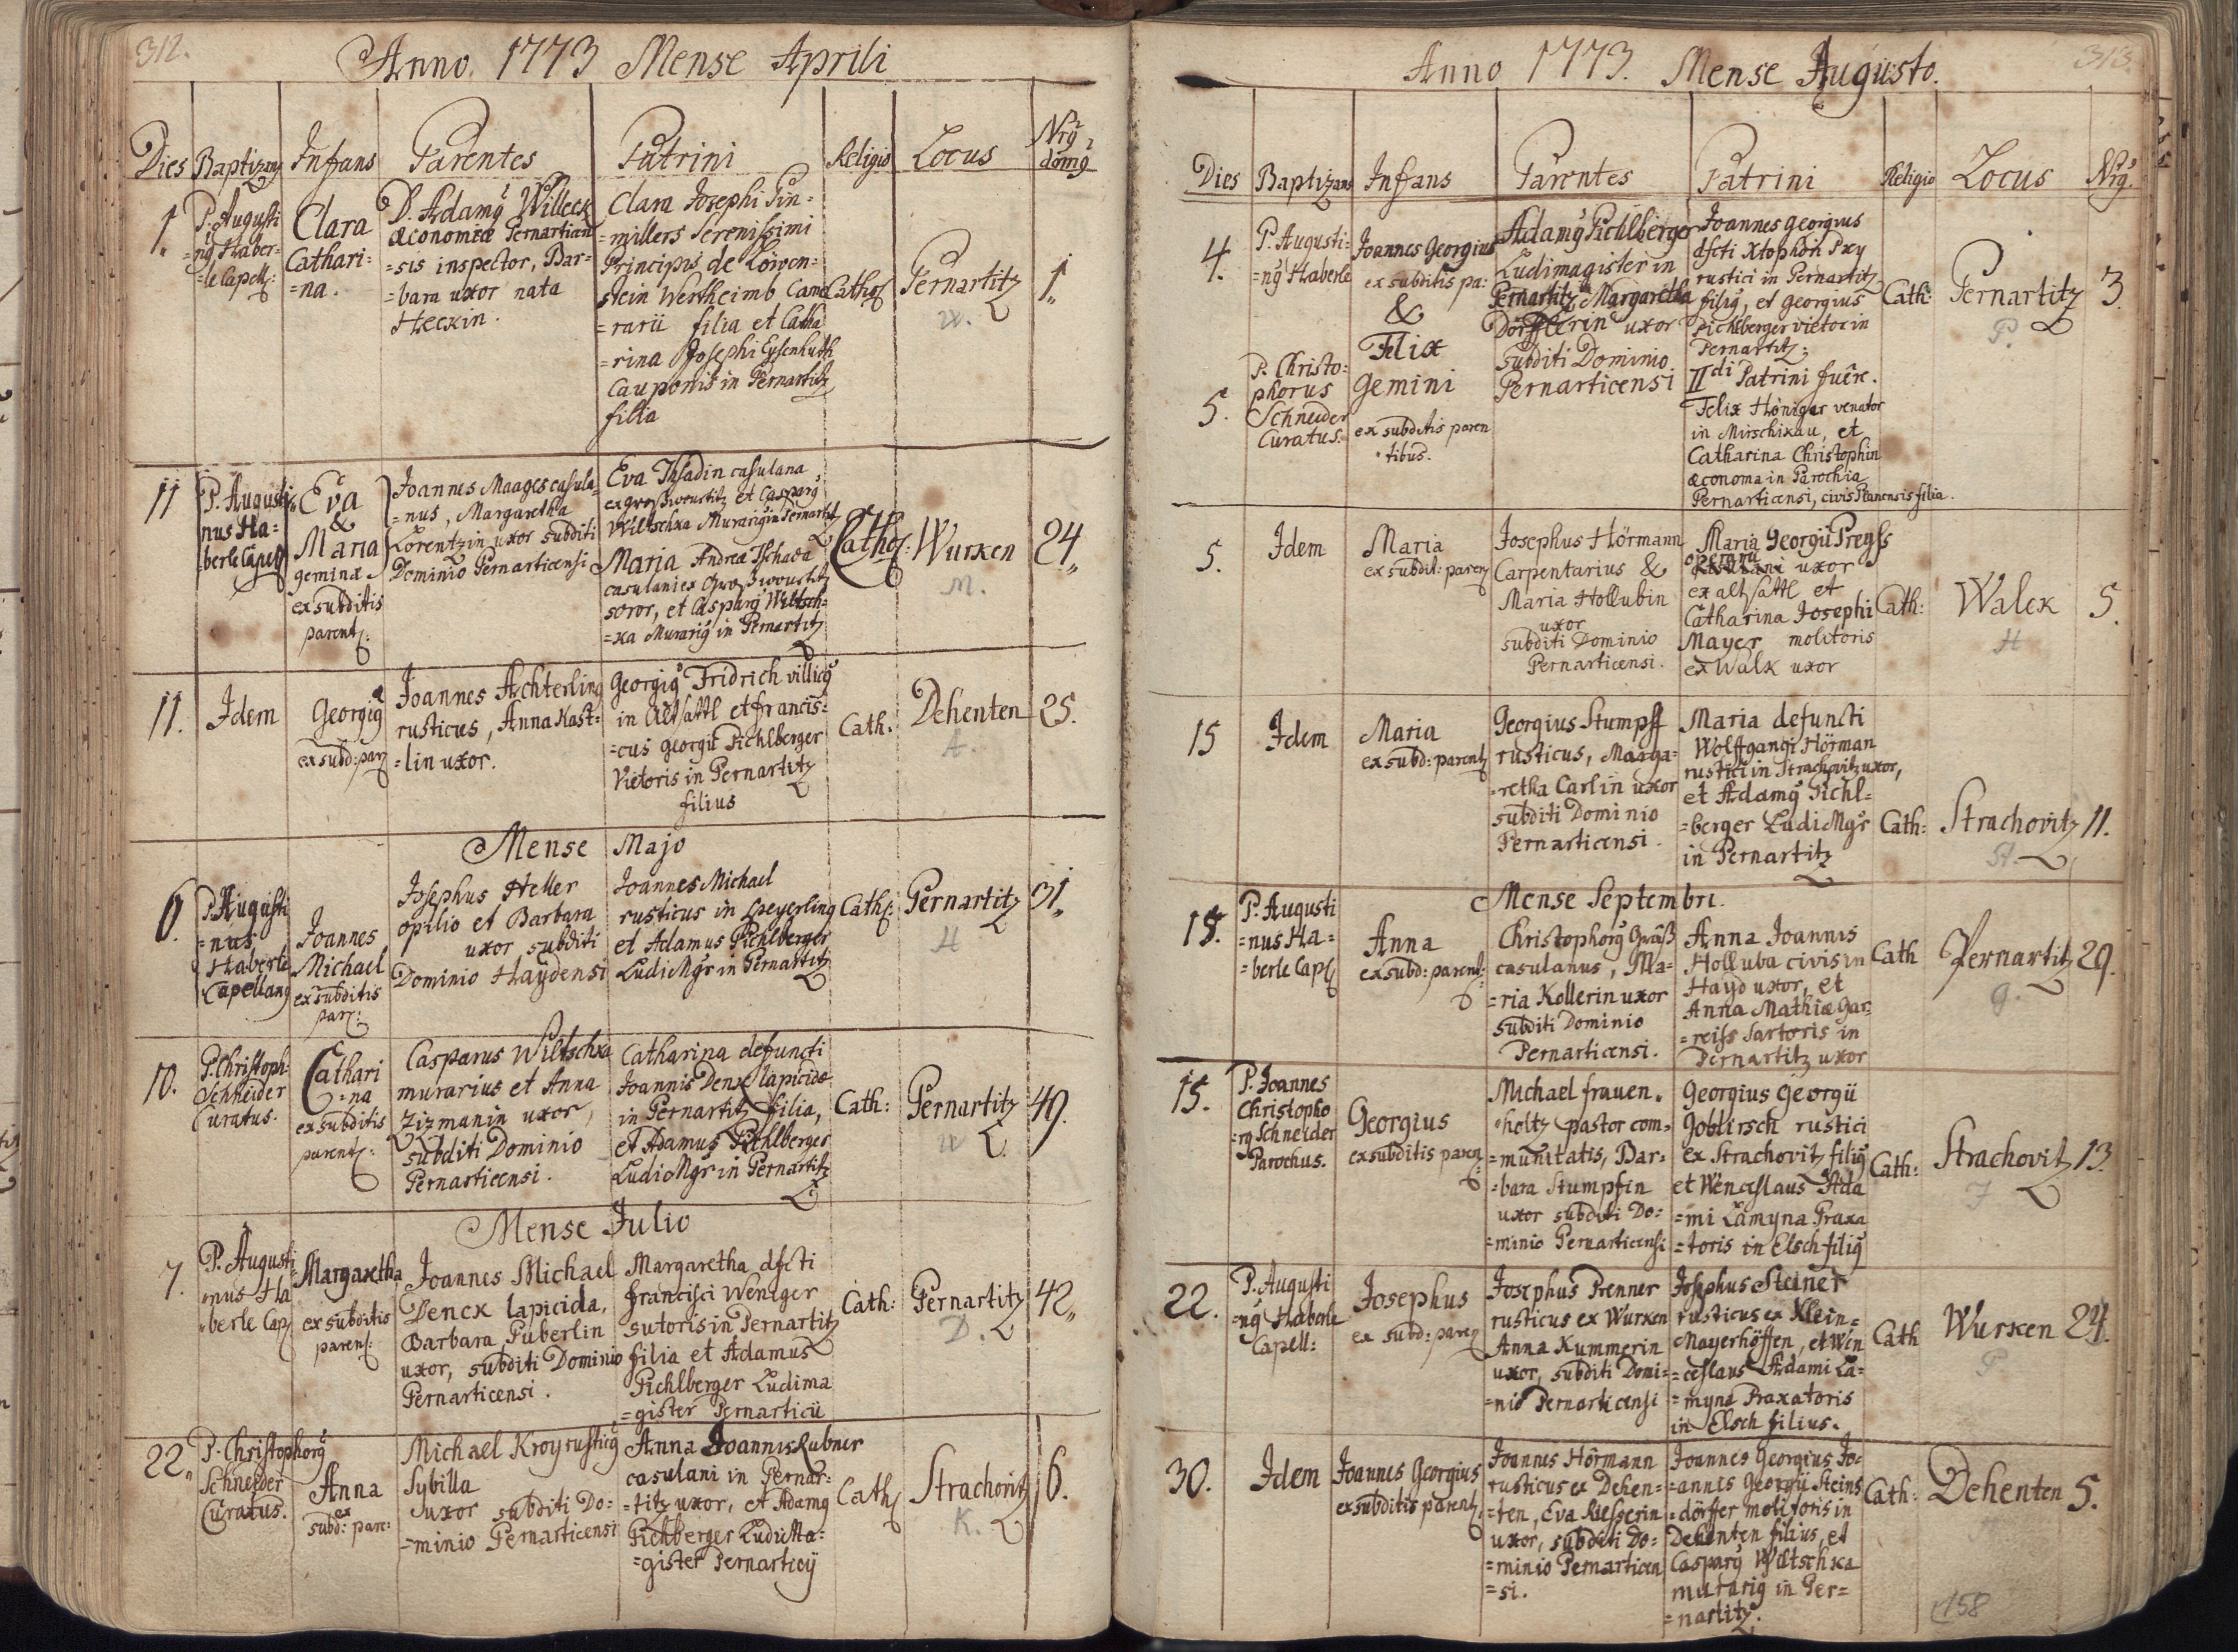 312.
Anno 1773 Mense Aprili
Dies Baptizans Infans Parentes Patrini Religio Locus Nrꝰ domꝰ
1.
P. Augusti
=nꝰ Haber=
=le Capell:
Clara
Cathari=
=na.
D. Adamꝰ Willeck
œconomiæ Pernarticen
=sis inspector, Bar=
=bara uxor nata
Heckin.
Clara Josephi Tin=
=millers Serenissimi
Principis de Löwen=
stein Wertheimb Came
=rarii filia et Catha
=rina Josephi Eysenhuth
Cauponis in Pernartitz
filia
Cathol:
Pernartitz
W.
1.
11
P. Augusti
nus Ha=
berle Capell
Eva
&
Maria
geminæ
ex subditis
parent:
Joannes Maages casula=
=nus, Margaretha
Lorentzin uxor subditi
Dominio Pernarticensi
Eva Thadin casulana
ex großwourtitz et Casparꝰ
Wiltschka Murariꝰ in Pernartitz
Maria Andreæ Tschada
casulani ex Großwourtitz
soror, et Casparꝰ Wiltsch=
=ka Murariꝰ in Pernartitz
Cathol:
Wurken
M.
24
11.
Idem
Georgiꝰ
ex subd: par:
Joannes Achterling
rusticus, Anna Kast=
=lin uxor.
Georgiꝰ Fridrich villicꝰ
in Altsattl et francis=
=cus georgii Pichlberger
Vietoris in Pernartitz
filius
Cath:
Dehenten
A.
25.
Mense Majo
6.
P. Augusti
=nus
Haberle
Capellanꝰ
Joannes
Michael
ex subditis
par:
Josephus Heller
opilio et Barbara
uxor subditi
Dominio Haydensi
Joannes Michael
rusticus in Speyerling
et Adamus Pichlberger
LudiMgr in Pernartitz
Cath:
Pernartitz
H
31
10.
P. Christoph:
Schneider
Curatus.
Cathari
=na
ex subditis
parent:
Casparus Wiltschka
murarius et Anna
Zizmanin uxor,
subditi Dominio
Pernarticensi.
Catharina defuncti
Joannis Denk lapicidæ
in Pernartitz filia,
et Adamus Pichlberger
LudiMgr in Pernartitz
Cath:
Pernartitz
W
49.
Mense Julio
7.
P. Augusti
nus Ha
berle Cap:
Margaretha
ex subditis
paren:
Joannes Michael
Denck lapicida,
Barbara Puberlin
uxor, subditi Dominio
Pernarticensi.
Margaretha dfcti
francisci Weniger
sutoris in Pernartitz
filia et Adamus
Pichlberger Ludima
=gister Pernarticii
Cath:
Pernartitz
D.
42
22.
P. Christophorꝰ
Schneider
Curatus.
Anna
ex
subd: pare:
Michael Kroy rusticꝰ
Sybilla
uxor subditi Do=
=minio Pernarticensi
Anna Joannis Rubner
casulani in Pernar=
=titz uxor, et Adamꝰ
Pichberger LudiMa=
=gister Pernarticij
Cath:
Strachovitz
K.
6.
313.
Anno 1773. Mense Augusto.
Dies Baptizans Infans Parentes Patrini Religio Locus Nrꝰ.
4.
P. Augusti=
=nꝰ Haberle
Joannes Georgius
ex subditis pa:
&
Felix
gemini
ex subditis paren
tibus.
5.
P. Christo=
phorus
Schneider
Curatus.
Adamꝰ Pichlberger
Ludimagister in
Pernartitz Margaretha
Dörfflerin uxor
subditi Dominio
Pernarticensi
Joannes georgius
dfcti Xtophori Pxy
rustici in Pernartitz
filiꝰ, et georgius
pichlberger vietor in
Pernartitz;
IIdi Patrini fuêre.
Felix Hönigar venator
in Mirschikau, et
Catharina Christophin
œconoma in Parochia
Pernarticensi, civis Planensis filia.
Cath:
Pernartitz
P.
3.
5.
Idem
Maria
ex subdit: paren:
Josephus Hörmann
Carpentarius &
Maria Hollubin
uxor
subditi Dominio
Pernarticensi.
Maria Georgii Preyss
operarii
uxor
ex altsattl et
Catharina Josephi
Mayer molitoris
ex Walk uxor
Cath:
Walck
H
5.
15
Idem
Maria
ex subd: parent:
Georgius Stumpff
rusticus, Marga=
=retha Carlin uxor
subditi Dominio
Pernarticensi.
Maria defuncti
Wolffgangi Hörman
rustici in Strachovitz uxor,
et Adamꝰ Pichl=
=berger LudiMgr
in Pernartitz
Cath:
Strachovitz
St.
11.
Mense Septembri.
15.
P. Augusti
=nus Ha=
=berle Cap:
Anna
ex subd: parent:
Christophorꝰ Grüß
casulanus, Ma=
=ria Kollerin uxor
subditi Dominio
Pernarticensi.
Anna Joannis
Holluba civis in
Hayd uxor, et
Anna Mathiæ Gar=
=reiss Sartoris in
Pernartitz uxor
Cath
Pernartitz
g.
29.
15.
P. Joannes
Christopho
=rꝰ Schneider
Parochus.
Georgius
ex subditis paren:
Michael frauen=
=holtz pastor com=
=munitatis, Bar=
=bara Stumpfin
uxor subditi Do=
=minio Pernarticensi
Georgius georgii
Goblirsch rustici
ex Strachovitz filiꝰ
et Wenceslaus Ada
=mi Lamyna Praxa
=toris in Elsch filiꝰ
Cath:
Strachovitz
F
13.
22.
P. Augusti
=nꝰ Haberle
Capell:
Josephus
ex subd: paren:
Josephus Prenner
rusticus ex Wurken
Anna Kummerin
uxor, subditi Domi=
=nio Pernarticensi
Josephus Steiner
rusticus ex Klein=
Mayerhöffen, et Wen
=ceslaus Adami La=
=myna Praxatoris
in Elsch filius.
Cath
Wurken
P
24.
30.
Idem
Joannes Georgius
ex subditis parent:
Joannes Hörmann
rusticus ex Dehen=
=ten, Eva Riesserin
uxor, subditi Do=
=minio Pernarticen
=si.
Joannes Georgius Jo=
=annes Georgii Steins
=dörffer molitoris in
Dehenten filius, et
Casparꝰ Wiltschka
murariꝰ in Per=
=nartitz.
Cath:
Dehenten
5.
158